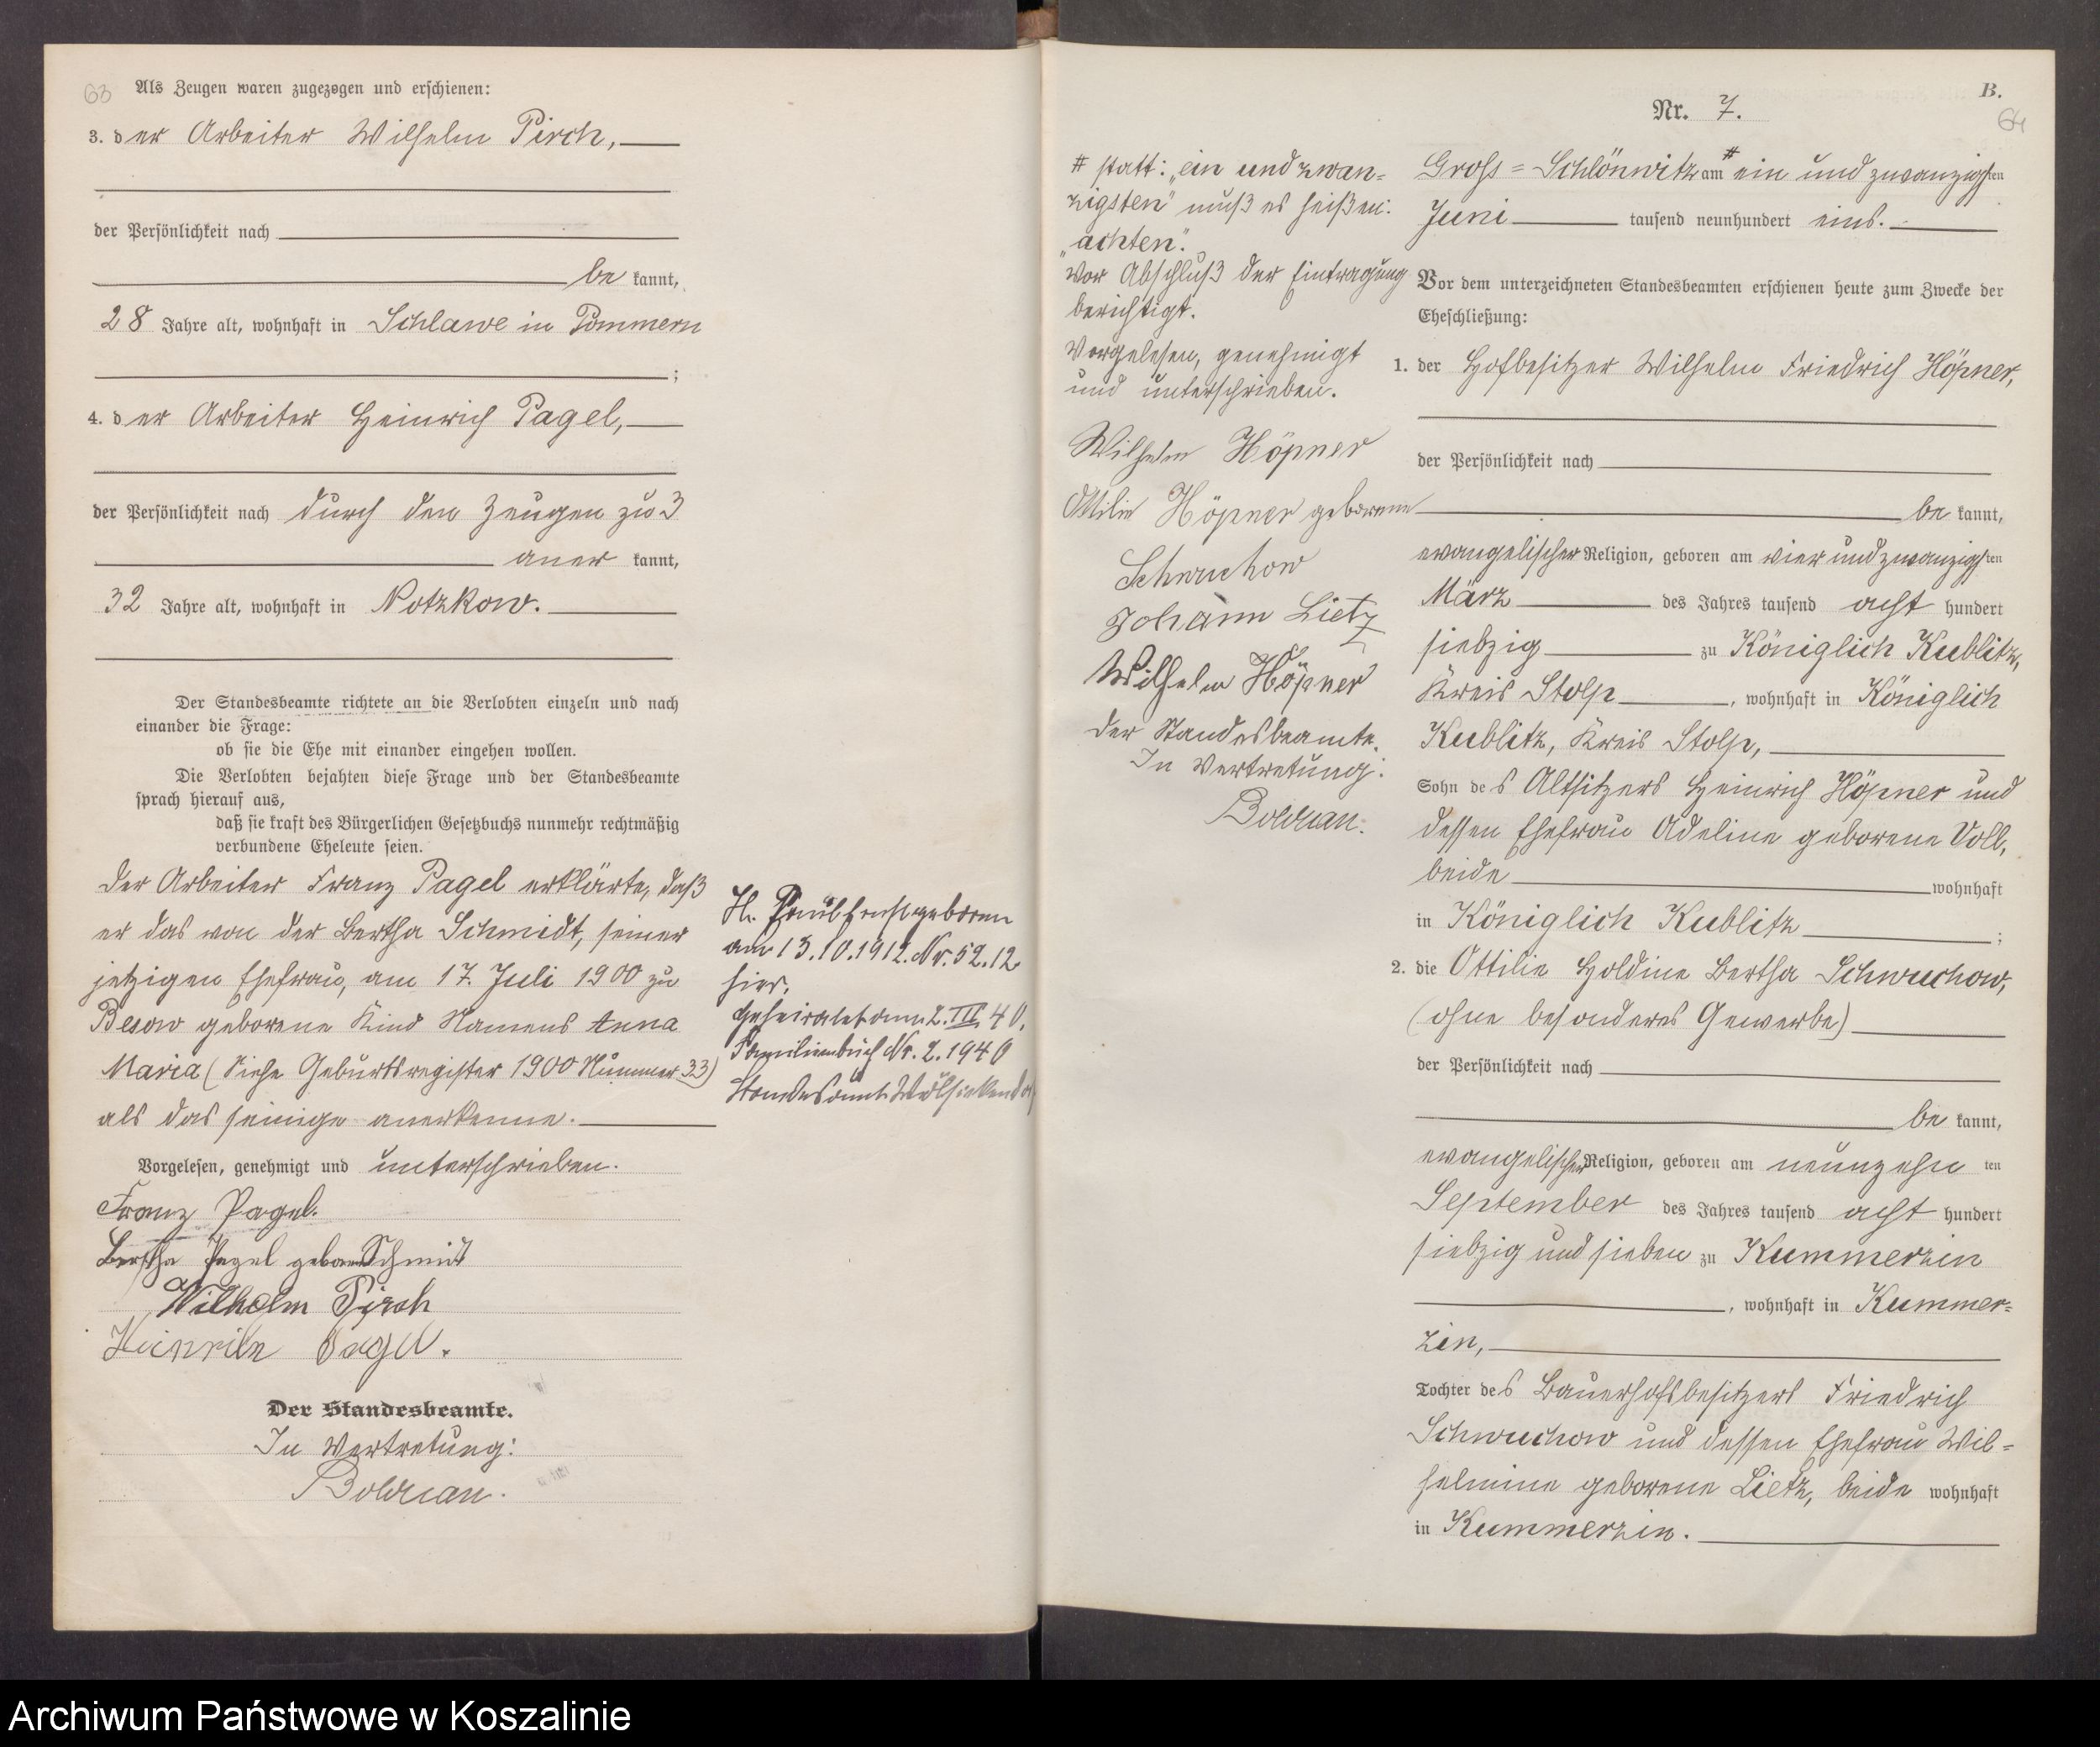 63
Als Zeugen waren zugezogen und erschienen:
3. der Arbeiter Wilhelm Pirch,
der Persönlichkeit nach
be kannt,
28 Jahre alt, wohnhaft in Schlawe in Pommern
;
4. der Arbeiter Heinrich Pagel,
der Persönlichkeit nach durch den Zeugen zu 3
aner kannt,
32 Jahre alt, wohnhaft in Notzkow.
Der Standesbeamte richtete an die Verlobten einzeln und nach
einander die Frage:
ob sie die Ehe mit einander eingehen wollen.
Die Verlobten bejahten diese Frage und der Standesbeamte
sprach hierauf aus,
daß sie kraft des Bürgerlichen Gesetzbuchs nunmehr rechtmäßig
verbundene Eheleute seien.
Der Arbeiter Franz Pagel erklärte, daß
er das von der Bertha Schmidt, seiner
jetzigen Ehefrau, am 17. Juli 1900 zu
Besow geborene Kind Namens Anna
Maria (Siehe Geburtsregister 1900 Nummer 33)
als das seinige anerkenne.
Vorgelesen, genehmigt und unterschrieben.
Franz Pagel.
Bertha Pagel geborene Schmidt
Wilhelm Pirch
Heinrich Pagel.
Der Standesbeamte.
In Vertretung:
Bolduan.
Paul Ernst geboren
am 13.10.1912. Nr. 52.12
hier.
Geheiratet am 2. III. 40.
Familienbuch Nr. 2. 1940
Standesamt
B.
64
Nr. 7.
# statt: „ein und zwan-
zigsten" muß es heißen:
„achten".
Vor Abschluß der Eintragung
berichtigt.
Vorgelesen, genehmigt
und unterschrieben.
Wilhelm Höpner
Ottilie Höpner geborene
Schwuchow
Johann Lietz
Wilhelm Höpner
Der Standesbeamte.
In Vertretung:
Bolduan.
Gross-Schlönwitz am # ein und zwanzigsten
Juni tausend neunhundert eins.
Vor dem unterzeichneten Standesbeamten erschienen heute zum Zwecke der
Eheschließung:
1. der Hofbesitzer Wilhelm Friedrich Höpner,
der Persönlichkeit nach
be kannt,
evangelischer Religion, geboren am vier und zwanzigsten
März des Jahres tausend acht hundert
siebzig zu Königlich Kublitz,
Kreis Stolp, wohnhaft in Königlich
Kublitz, Kreis Stolp,
Sohn des Altsitzers Heinrich Höpner und
dessen Ehefrau Adeline geborene Voll,
beide wohnhaft
in Königlich Kublitz;
2. die Ottilie Holdine Bertha Schwuchow,
(ohne besonderes Gewerbe)
der Persönlichkeit nach
be kannt,
evangelischer Religion, geboren am neunzehn ten
September des Jahres tausend acht hundert
siebzig und sieben zu Kummerzin
, wohnhaft in Kummer-
zin,
Tochter des Bauerhofsbesitzers Friedrich
Schwuchow und dessen Ehefrau Wil-
helmine geborene Lietz, beide wohnhaft
in Kummerzin.
Archiwum Państwowe w Koszalinie